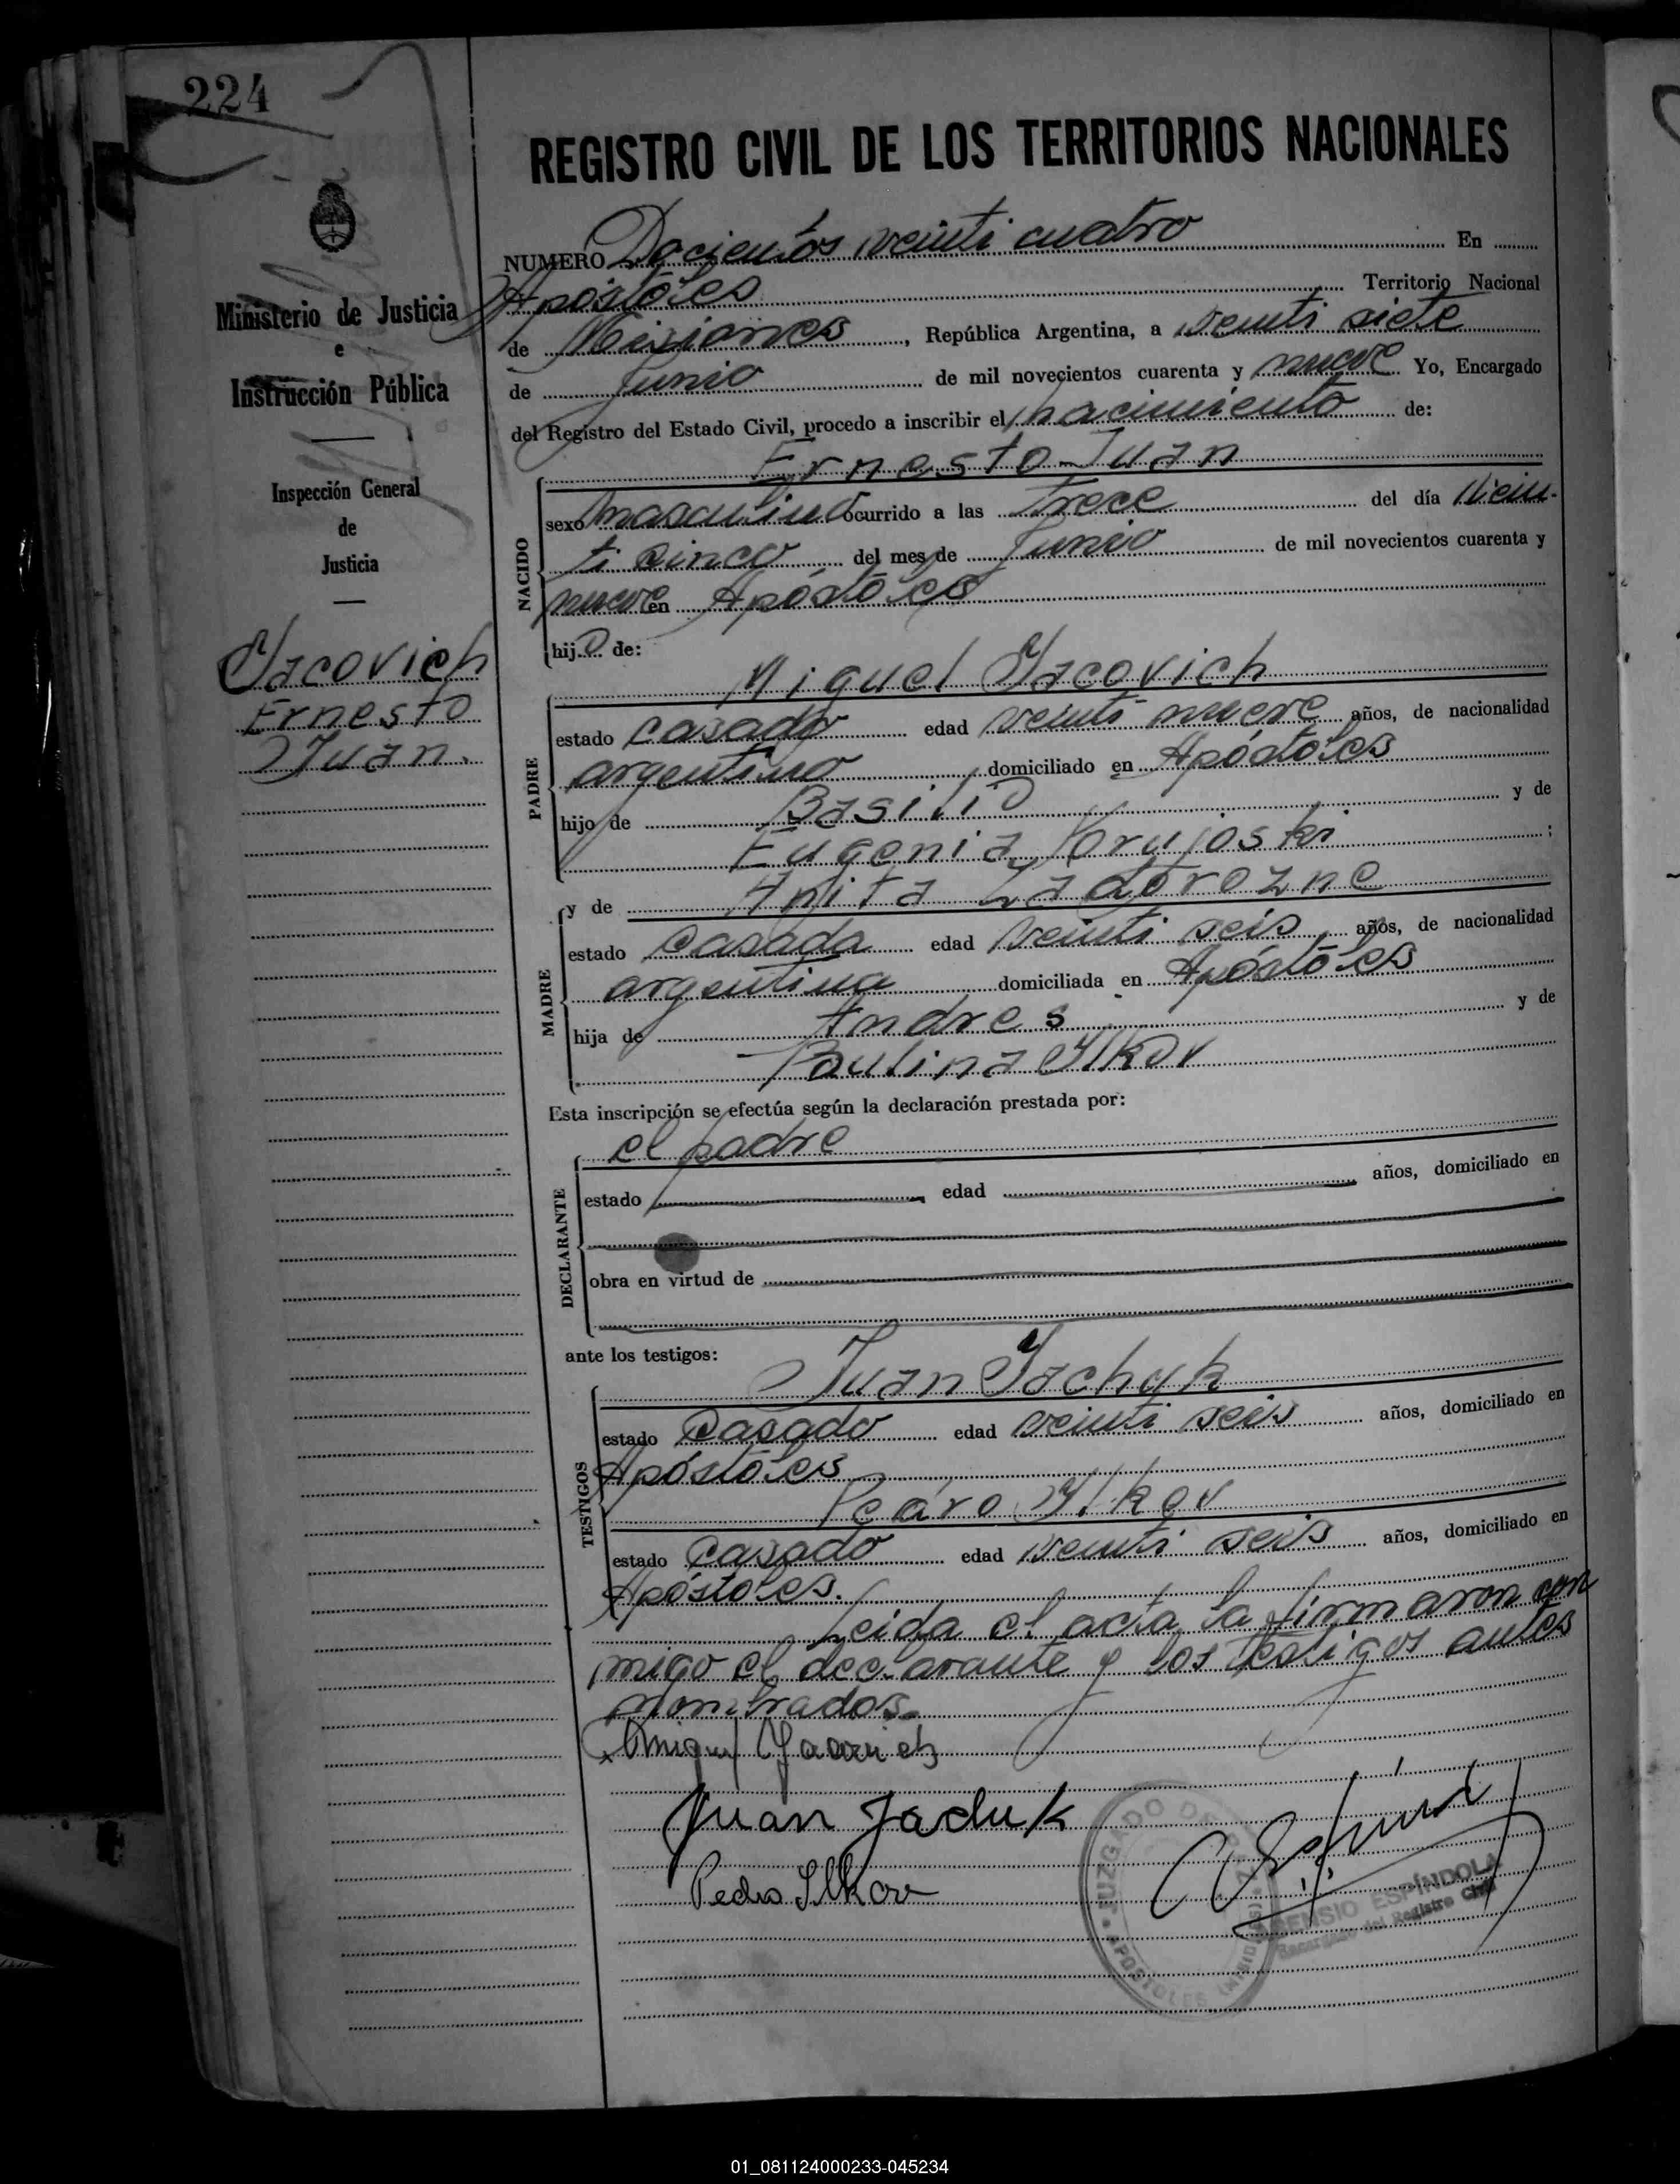 224
REGISTRO CIVIL DE LOS TERRITORIOS NACIONALES
Ministerio de Justicia
e
Instrucción Pública
Inspección General
de
Justicia
Yacovich
Ernesto
Juan.
NUMERO Docientos veinti cuatro En
Apóstoles Territorio Nacional
de Misiones, República Argentina, a veinti siete
de Junio de mil novecientos cuarenta y nueve Yo, Encargado
del Registro del Estado Civil, procedo a inscribir el nacimiento de:
Ernesto Juan
NACIDO
sexo masculino ocurrido a las trece del día Vein-
ti cinco del mes de Junio de mil novecientos cuarenta y
nueve en Apóstoles
hijo de:
Miguel Yacovich
PADRE
estado casado edad veinti nueve años, de nacionalidad
argentino domiciliado en Apóstoles
hijo de Basilio y de
Eugenia Korujoski;
y de Anita Zadorozne
MADRE
estado casada edad veinti seis años, de nacionalidad
argentina domiciliada en Apóstoles
hija de Andres y de
Paulina Ilkov
Esta inscripción se efectúa según la declaración prestada por:
el padre
DECLARANTE
estado edad años, domiciliado en
obra en virtud de
ante los testigos:
Juan Yachuk
TESTIGOS
estado casado edad veinti seis años, domiciliado en
Apóstoles
Pedro Ilkov
estado casado edad veinti seis años, domiciliado en
Apóstoles.
Leida el acta la firmaron con
migo el declarante y los testigos antes
nombrados.
Miguel Yacovich
Juan Jachuk
Pedro Ilkow
JUZGADO DE PAZ
APOSTOLES (MISIONES)
ASENSIO ESPÍNDOLA
Encargado del Registro Civil
01_081124000233-045234